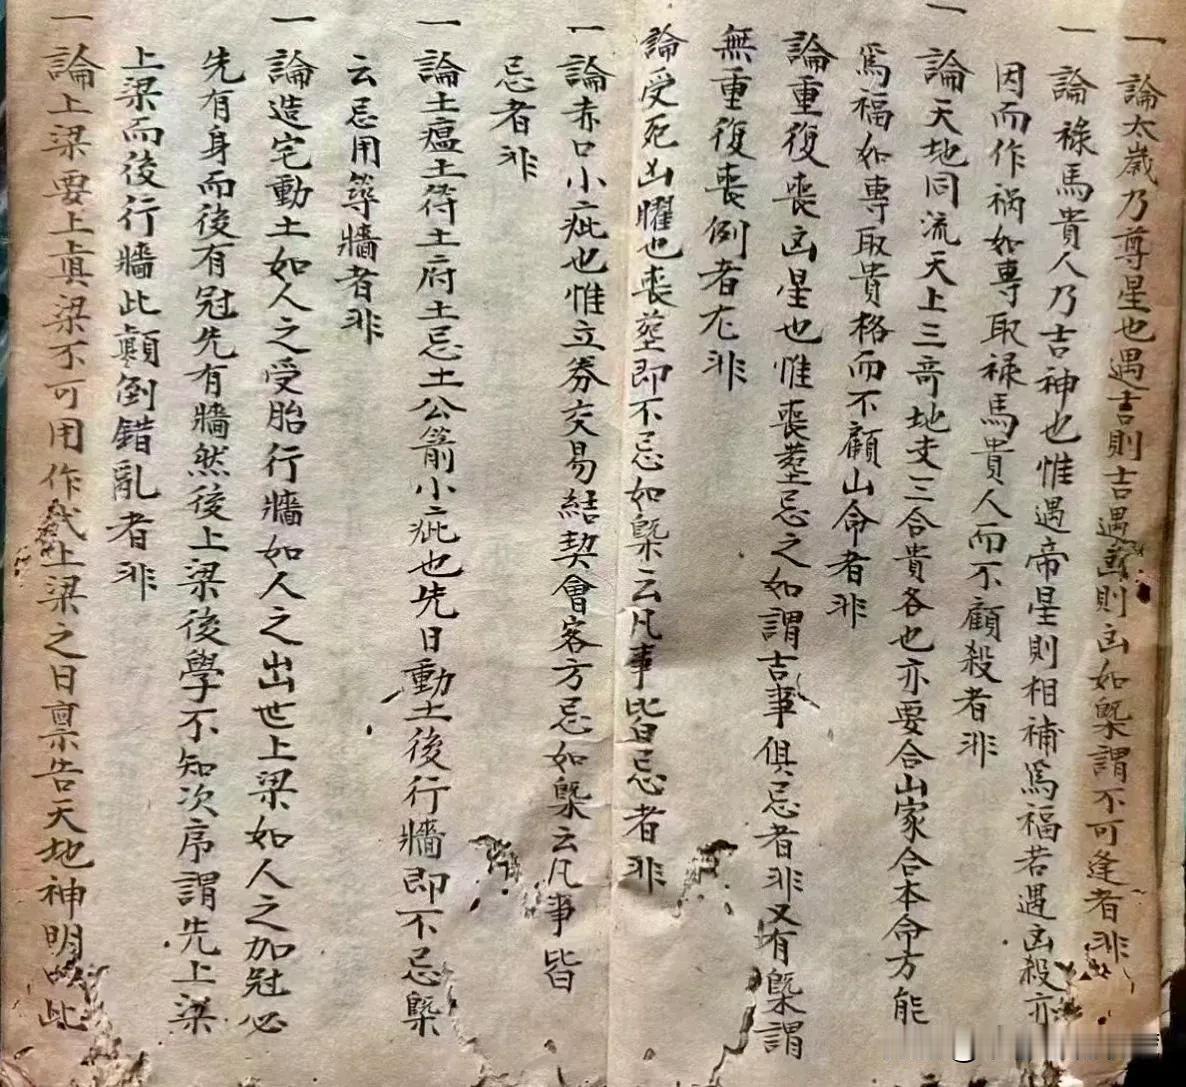 一論太歲乃尊星也遇吉則吉遇凶則凶如槩謂不可逢者非
一論祿馬貴人乃吉神也惟遇帝星則相補爲福若遇凶殺亦
因而作禍如專取祿馬貴人而不顧殺者非
一論天地同流天上三奇地支三合貴各也亦要合山家合本命方能
爲福如專取貴格而不顧山命者非
論重復喪凶星也惟喪塟忌之如謂吉事俱忌者非又有槩謂
無重復喪例者尤非
論受死凶曜也喪塟即不忌如槩云凡事皆忌者非
一論赤口小疵也惟立券交易結契會客方忌如槩云凡事皆
忌者非
一論土瘟土符土府土忌土公箭小疵也先日動土後行牆即不忌槩
云忌用築牆者非
一論造宅動土如人之受胎行牆如人之出世上梁如人之加冠必
先有身而後有冠先有牆然後上梁後學不知次序謂先上梁
上梁而後行牆此顛倒錯亂者非
一論上梁要上眞梁不可用作代上梁之日禀告天地神明此